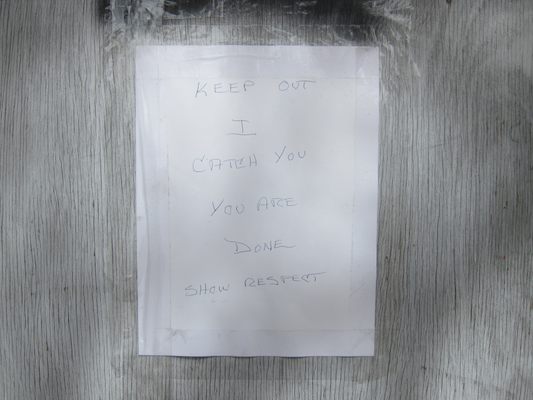 KEEP OUT
I
CATCH YOU
YOU ARE
DONE
SHOW RESPECT